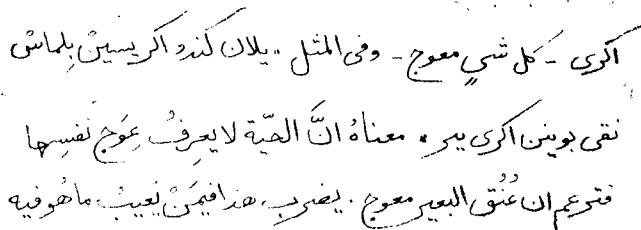 اكرى - كل شىٍ معوج - وفى المثل . يلان كندو اكريسين بِلماسْ
تقى بوينن اكرى يير . معناهُ انَّ الحيّة لا يعرِفُ عِوَج نفسِها
فتزعم ان عُنُق البعير معوج . يضرب هذا فيمَنْ يَعِيبُ ما هُو فيه